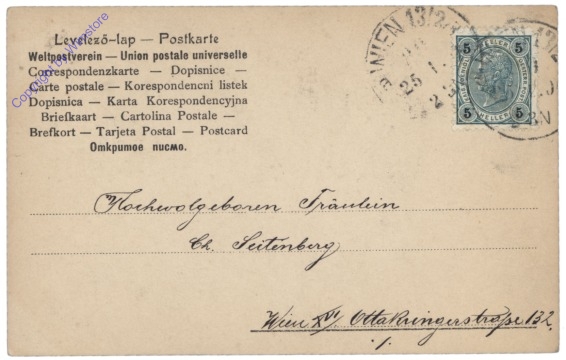 Levelező-lap — Postkarte
Weltpostverein — Union postale universelle
Correspondenzkarte — Dopisnice —
Carte postale — Korespondencni listek
Dopisnica — Karta Korespondencyjna
Briefkaart — Cartolina Postale —
Brefkort — Tarjeta Postal — Postcard
Откритое писмо.
Copyright by Wienstore
WIEN 13/2
25 1
5 5
5 5
HELLER HELLER
Hochwolgeboren Fräulein
Ch. Seitenberg
Wien XVI Ottakringerstraße 132.